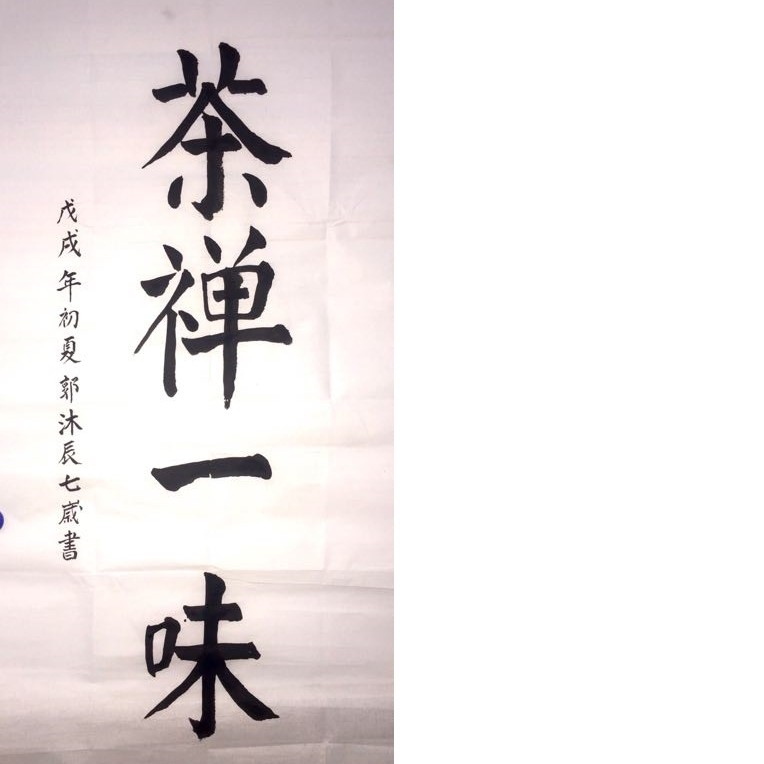 茶禅一味
戊戌年初夏郭沐辰七歲書